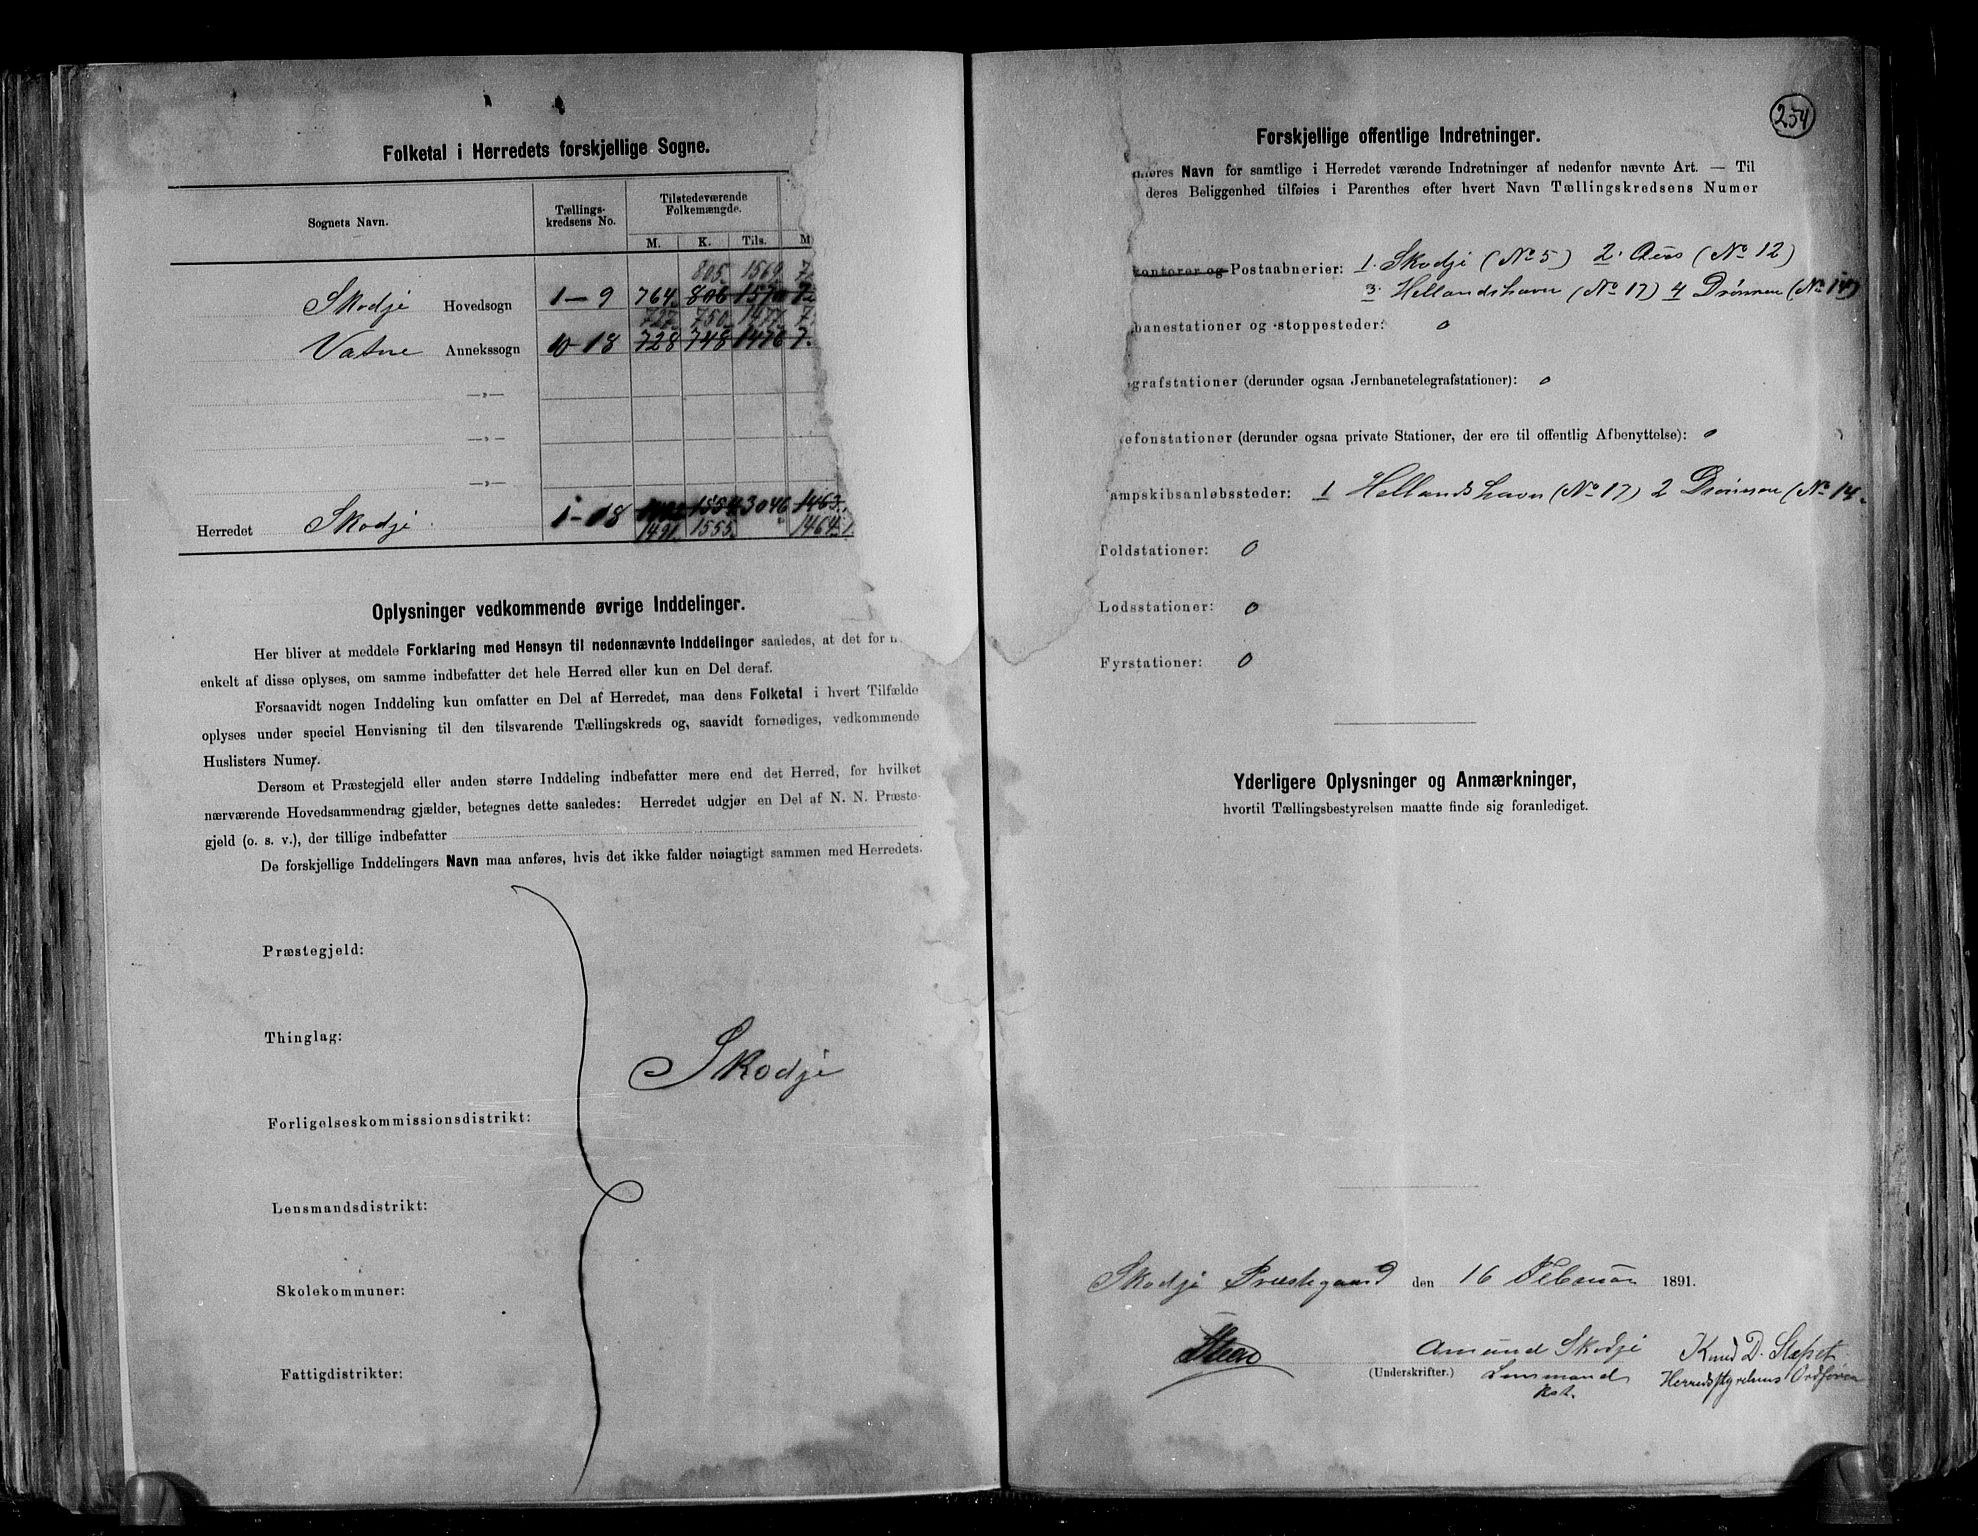 Folketal i Herredets forskjellige Sogne.
Sognets Navn.
Tællings-
kredsens No.
Tilstedeværende
Folkemængde.
M. K. Tils. M
805. 1569. 7
Skodje Hovedsogn 1-9 764. 806 1570 72
727. 750. 1477. 7
Vatne Annekssogn 10-18 728 748 1476 7.
—„—
—„—
—„—
Herredet Skodje 1-18 1492 1554 3046 1463.
1491. 1555. 1464.
Oplysninger vedkommende øvrige Inddelinger.
Her bliver at meddele Forklaring med Hensyn til nedennævnte Inddelinger saaledes, at det for
enkelt af disse oplyses, om samme indbefatter det hele Herred eller kun en Del deraf.
Forsaavidt nogen Inddeling kun omfatter en Del af Herredet, maa dens Folketal i hvert Tilfælde
oplyses under speciel Henvisning til den tilsvarende Tællingskreds og, saavidt fornødiges, vedkommende
Huslisters Numer.
Dersom et Præstegjeld eller anden større Inddeling indbefatter mere end det Herred, for hvilket
nærværende Hovedsammendrag gjælder, betegnes dette saaledes: Herredet udgjør en Del af N. N. Præste-
gjeld (o. s. v.), der tillige indbefatter
De forskjellige Inddelingers Navn maa anføres, hvis det ikke falder nøiagtigt sammen med Herredets.
Præstegjeld:
Thinglag:
Skodje
Forligelseskommissionsdistrikt:
Lensmandsdistrikt:
Skolekommuner:
Fattigdistrikter:
254
Forskjellige offentlige Indretninger.
føres Navn for samtlige i Herredet værende Indretninger af nedenfor nævnte Art. — Til
deres Beliggenhed tilføies i Parenthes efter hvert Navn Tællingskredsens Numer
kontorer og Postaabnerier: 1. Skodje (No 5) 2. (No 12)
3. Hellandshavn (No 17) 4 Drønnen (No 14)
banestationer og -stoppesteder: 0
grafstationer (derunder ogsaa Jernbanetelegrafstationer): 0
efonstationer (derunder ogsaa private Stationer, der ere til offentlig Afbenyttelse): 0
ampskibsanløbssteder: 1 Hellandshavn (No 17) 2 Drønnen (No 14.
Toldstationer: 0
Lodsstationer: 0
Fyrstationer: 0
Yderligere Oplysninger og Anmærkninger,
hvortil Tællingsbestyrelsen maatte finde sig foranlediget.
Skodje Præstegaard den 16 Februar 1891.
Steen Amund Skodje Knud D. Slepet
(Underskrifter.) Lensmand Herredsstyrelsens Ordfører